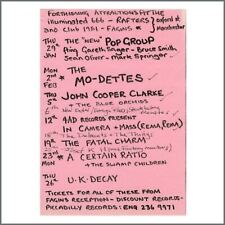 FORTHCOMING ATTRACTIONS AT THE
illuminated 666 - RAFTERS oxford st
2nd Club 1981 - FAGINS Manchester
THU THE "NEW" POP GROUP
29th Gareth Sager - Bruce Smith,
JAN Sean Oliver - Mark Springer
MON THE
2nd MO-DETTES
FEB
THU JOHN COOPER CLARKE
5th + THE BLUE ORCHIDS
12th 4AD RECORDS PRESENT
IN CAMERA + MASS (REMA, REMA)
19th THE FATAL CHARM
MON
23rd A CERTAIN RATIO
+ THE SWAMP CHILDREN
THU U.K. DECAY
26th
TICKETS FOR ALL OF THESE FROM
FAGINS RECEPTION - DISCOUNT RECORDS -
PICCADILLY RECORDS : ENQ 236 9971